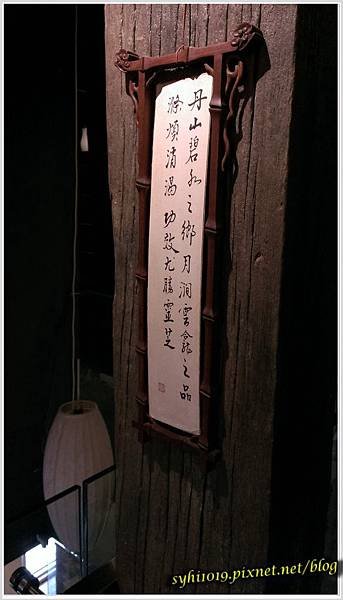 丹山碧水之鄉月澗雲龕之品
滌煩消渴功效尤勝靈芝
syhi1019.pixnet.net/blog